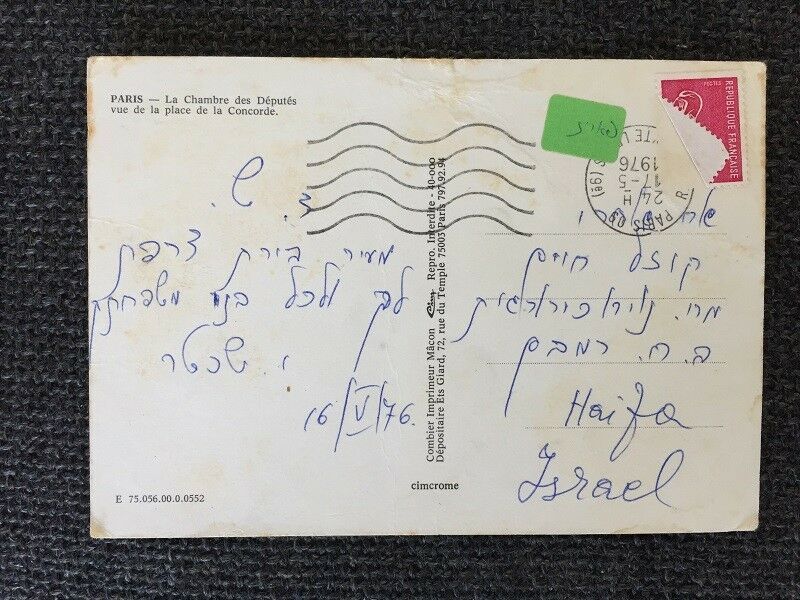 PARIS — La Chambre des Députés
vue de la place de la Concorde.
ד. ש.
מעיר בירת צרפת
לך ולכל בני משפחתך
י. שכטר
16/V/76.
E 75.056.00.0.0552
Combier Imprimeur Mâcon Cim Repro. Interdite - 40-000
Dépositaire Ets Giard, 72, rue du Temple 75003 Paris 797.92.94
cimcrome
REPUBLIQUE FRANÇAISE
POSTES
PARIS 09
24 H
17-5
1976
(9e)
קוזל חיים
מח. נוירוכירורגית
ב. ח. רמבם
Haifa
Israel